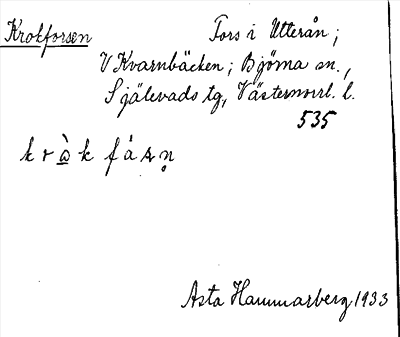 Krokforsen Fors i Utterån;
V Kvarnbäcken; Björna sn.,
Själevads tg, Västernorrl. l.
535
k r ò̲ k f å̀ ʂ n̥
Asta Hammarberg 1933